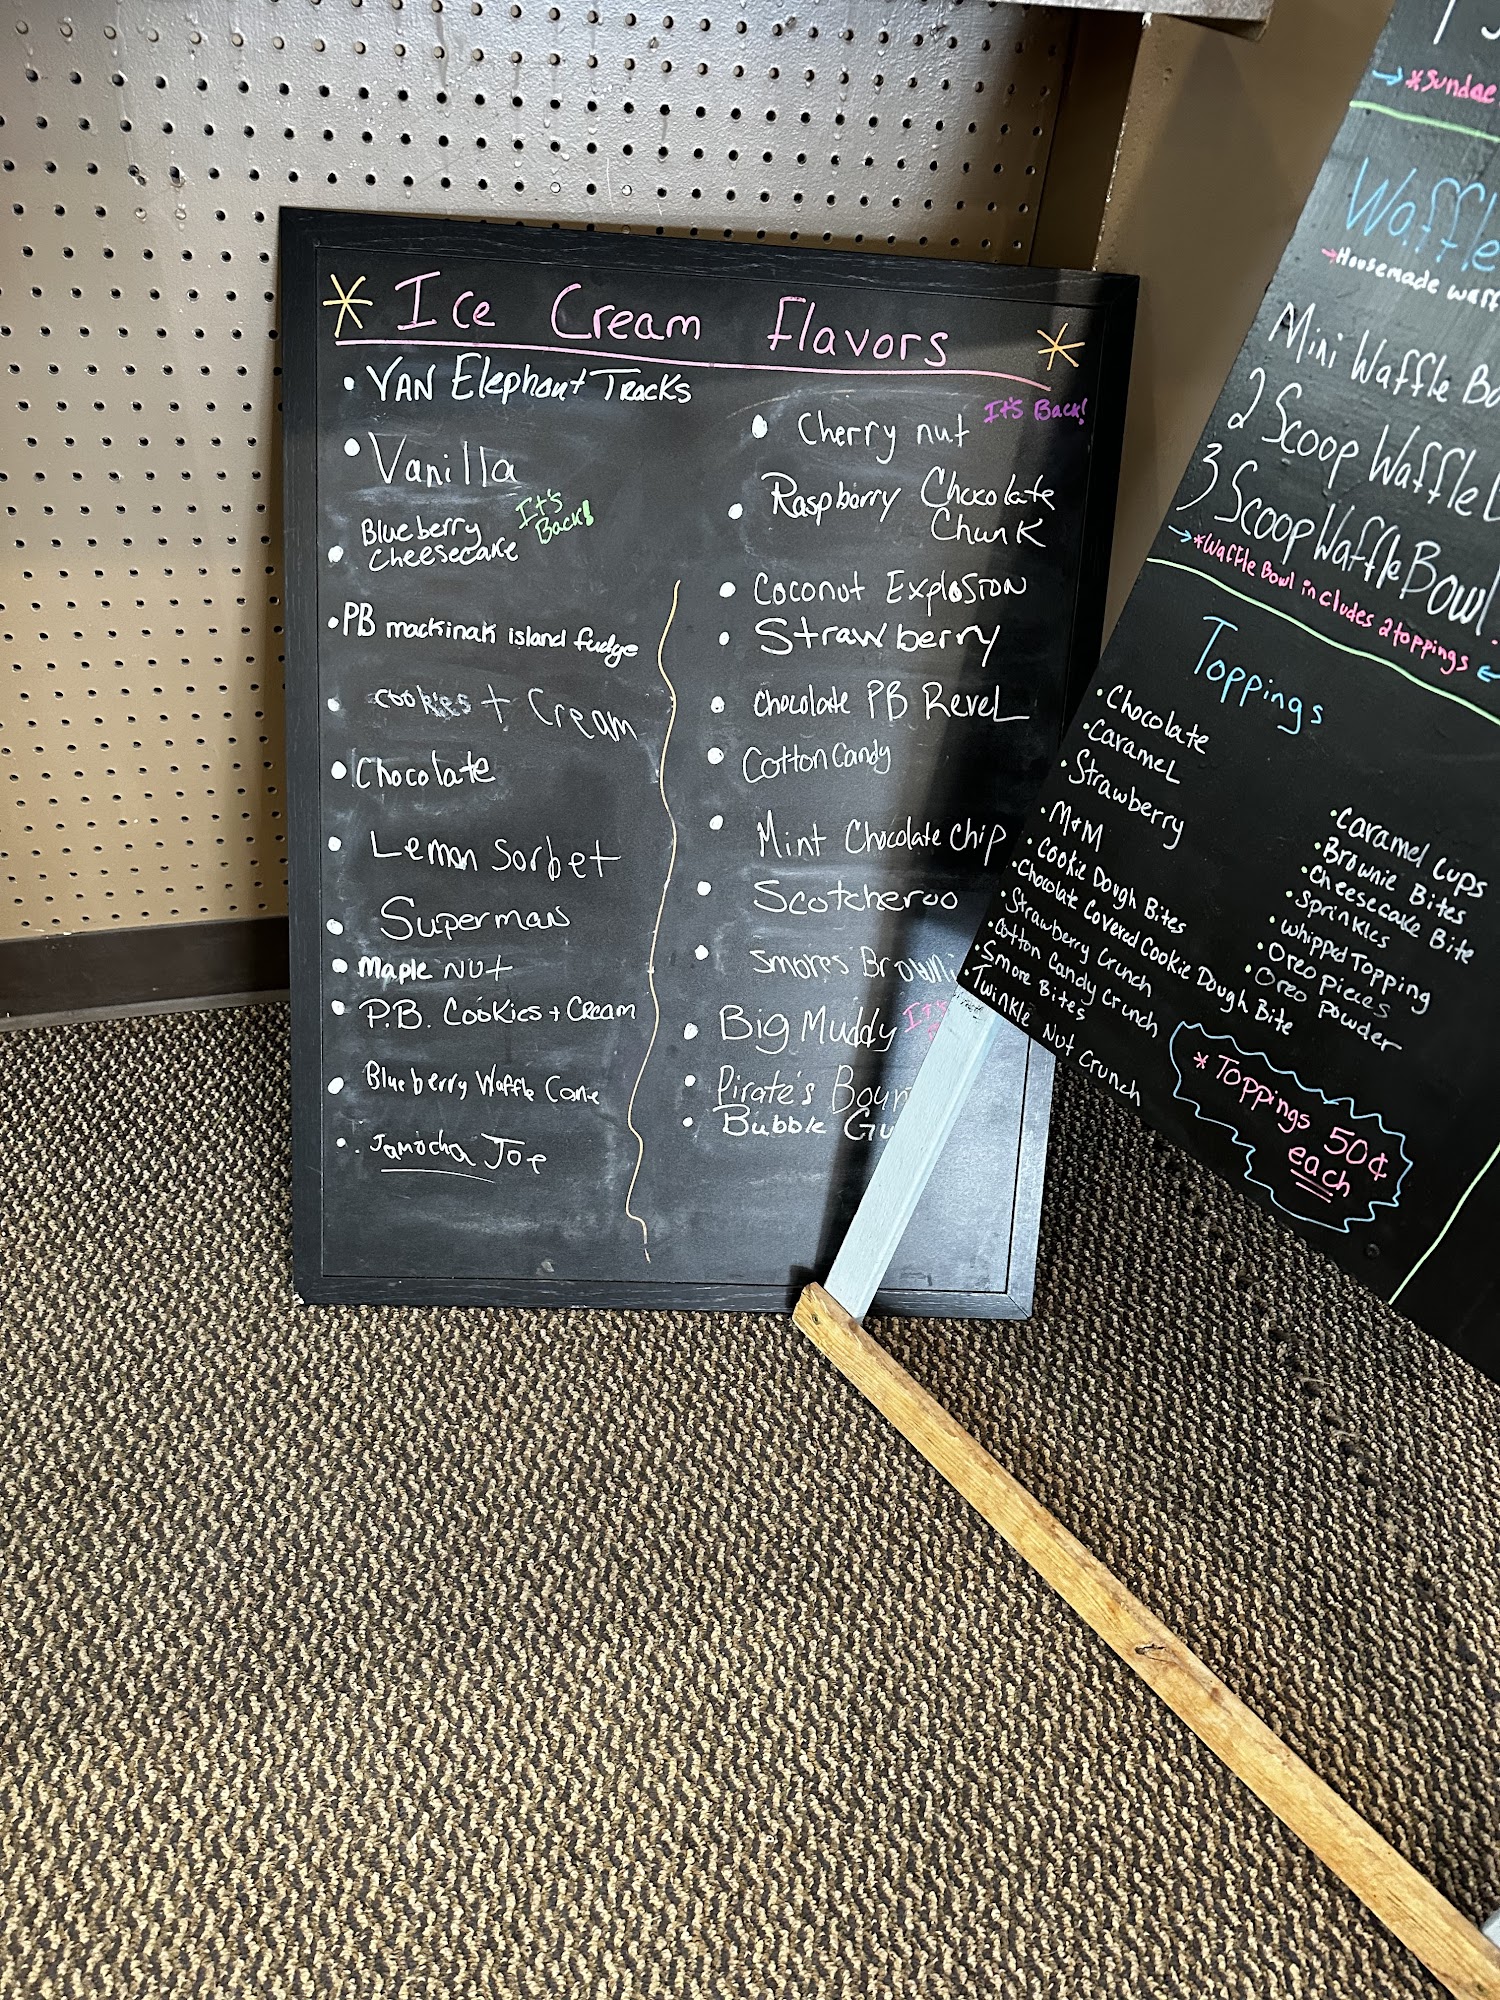 * Ice Cream Flavors *
• VAN Elephant Tracks
• Vanilla
• Blueberry
cheesecake
It's
Back!
• PB mackinak island fudge
• cookies + Cream
• Chocolate
• Lemon Sorbet
• Superman
• Maple NUT
• P.B. Cookies + Cream
• Blueberry Waffle Cone
• Jamocha Joe
• Cherry nut
It's Back!
• Raspberry Chocolate
Chunk
• Coconut Explosion
• Strawberry
• Chocolate PB Revel
• Cotton Candy
• Mint Chocolate Chip
• Scotcheroo
• Smores
• Big Muddy
• Pirate's
• Bubble
→ *Sundae
Waffle
→ Housemade
Mini Waffle
2 Scoop Waffle
3 Scoop Waffle Bowl
→ *Waffle Bowl includes 2 toppings ←
Toppings
• Chocolate
• Caramel
• Strawberry
• M+M
• Cookie Dough Bites
• Chocolate Covered Cookie Dough Bite
• Strawberry Crunch
• Cotton Candy Crunch
• Smore Bites
• Twinkle Nut Crunch
• Caramel Cups
• Brownie Bites
• Cheesecake Bite
• Sprinkles
• whipped Topping
• Oreo Pieces
• Oreo Powder
* Toppings 50¢
each